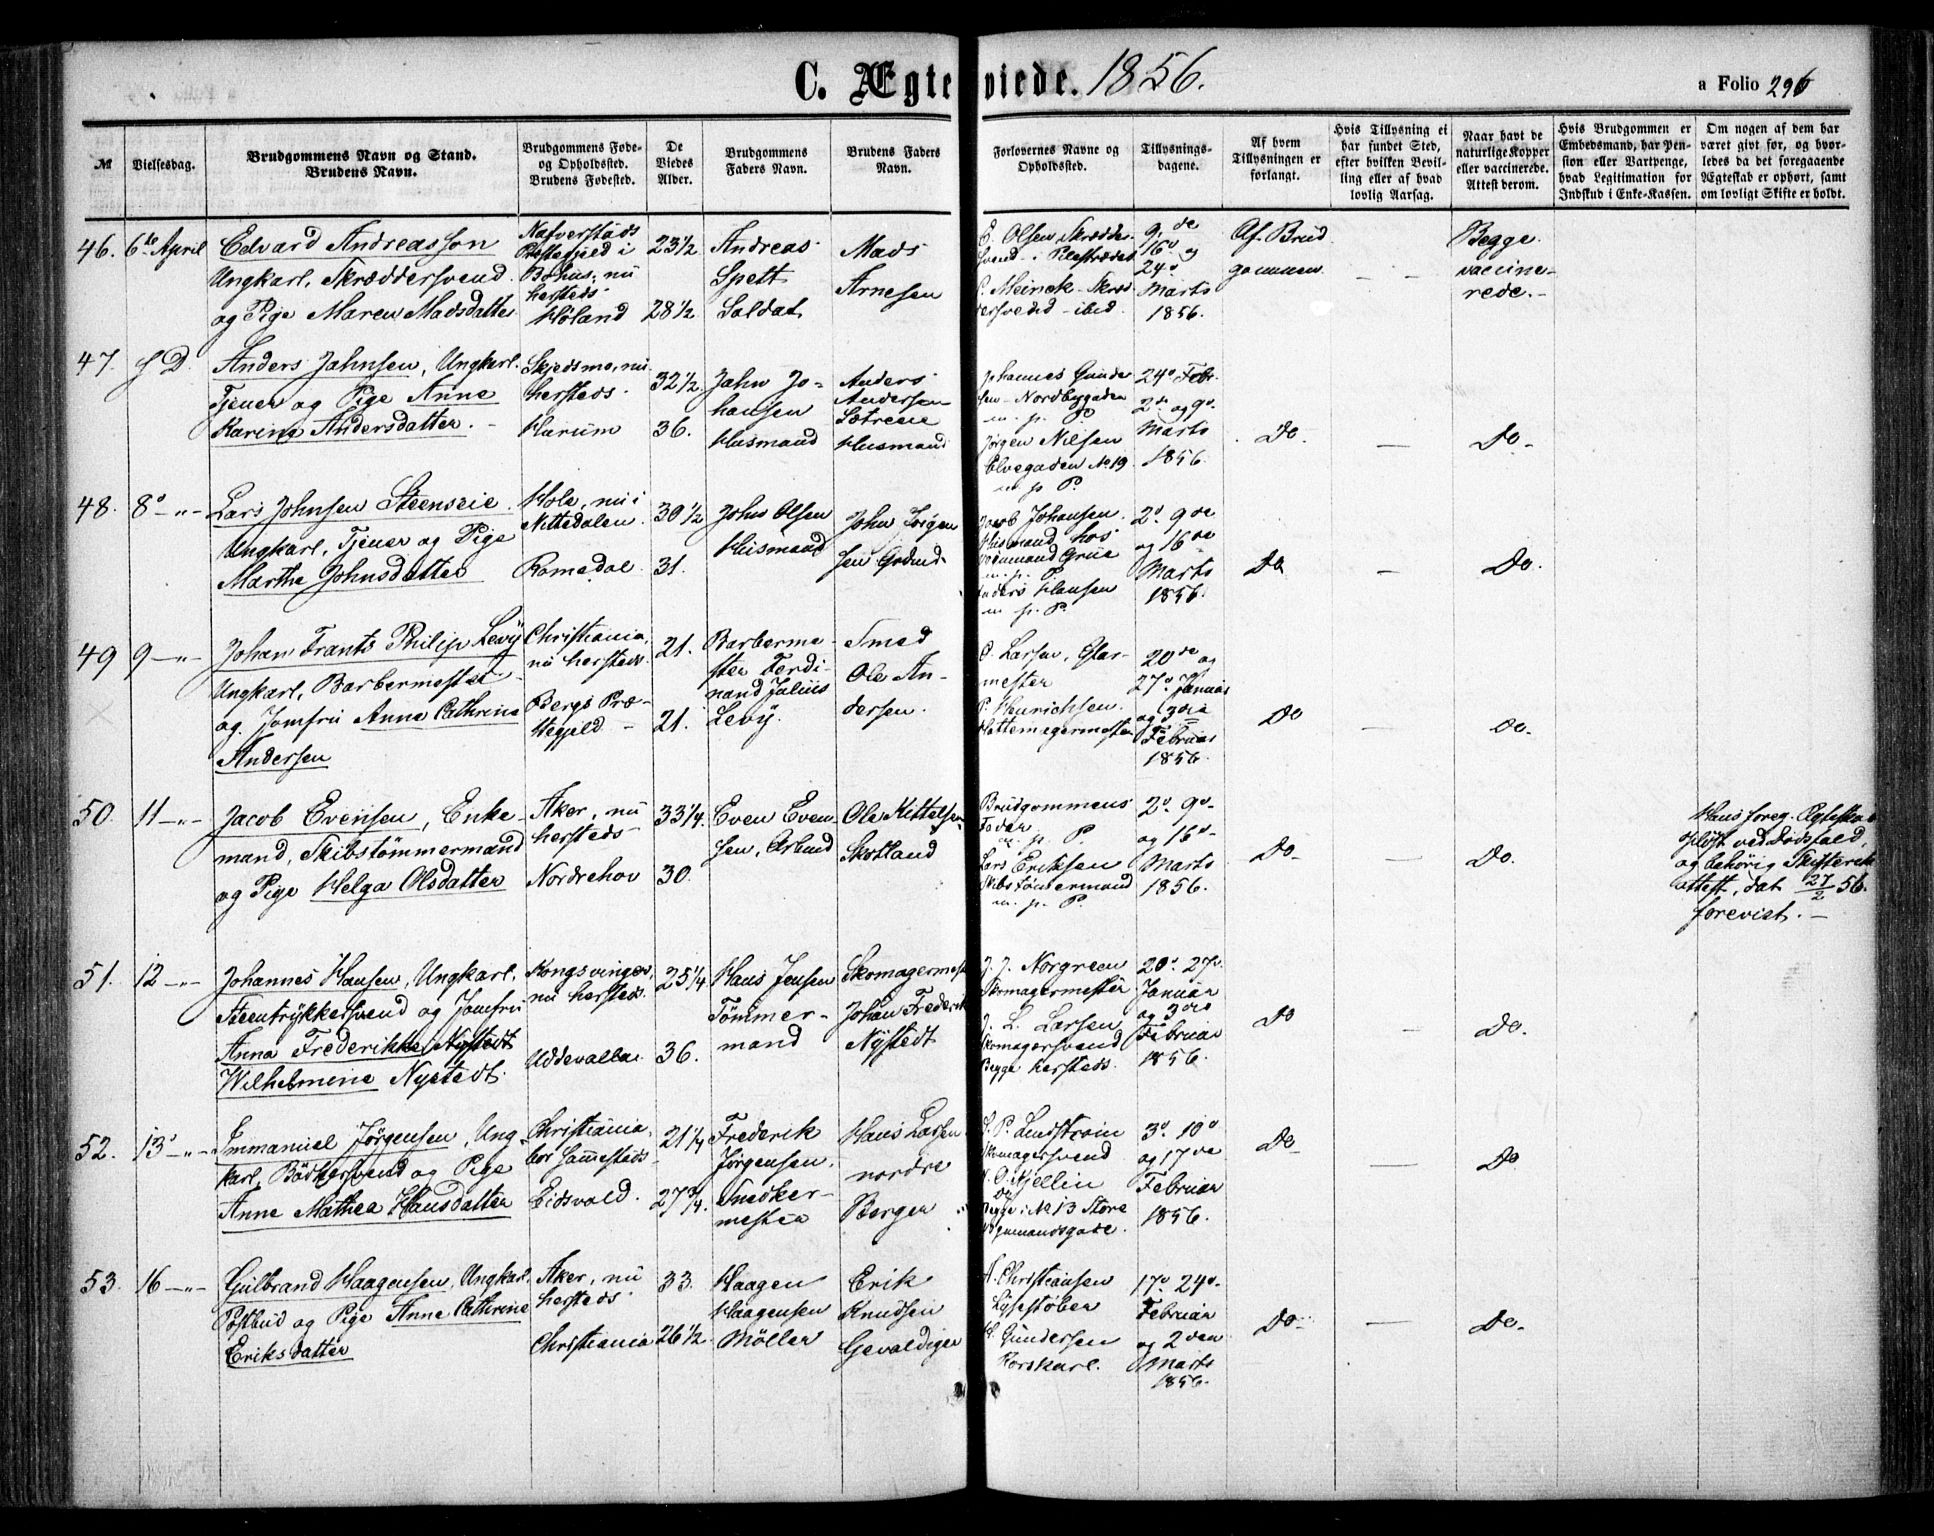 C. Ægteviede. 1856.
a Folio 296
№
Vielsesdag.
Brudgommens Navn og Stand.
Brudens Navn.
Brudgommens Føde-
og Opholdssted.
Brudens Fødested.
De
Viedes
Alder.
Brudgommens
Faders Navn.
Brudens Faders
Navn.
Forlovernes Navne og
Opholdssted.
Tillysnings-
dagene.
Af hvem
Tillysningen er
forlangt.
Hvis Tillysning ei
har fundet Sted,
efter hvilken Bevil-
ling eller af hvad
lovlig Aarsag.
Naar havt de
naturlige Kopper
eller vaccinerede.
Attest derom.
Hvis Brudgommen er
Embedsmand, har Pen-
sion eller Vartpenge,
hvad Legitimation for
Indskud i Enke-Kassen.
Om nogen af dem har
været gift før, og hvor-
ledes da det foregaaende
Ægteskab er ophørt, samt
om lovligt Skifte er holdt.
46.
6te April
Edvard Andreasson
Ungkarl, Skræddersvend
og Pige Maren Madsdatter
Nafverstads
Præstegjeld i
Bohus, nu
hersteds
Høland
23½
28½
Andreas
Spett
Soldat
Mads
Arnesen
E. Olsen Skrædder
svend i Pilestrædet
P. Meinck Skræd
dersvend - ibid.
9de
16d og
24d
Marts
1856.
Af Brud
gommen
Begge
vaccine-
rede. -
47.
s D.
Anders Jahnsen, Ungkarl.
Tjener og Pige Anne
Karine Andersdatter. -
Skjedsmo, nu
hersteds.
Hurum
32½.
36.
Jahn Jo-
hansen
Husmand
Anders
Andersen
Sætreeie
Husmand
Johannes Gunder
sen - Nordbygaden
m. p. P.
Jørgen Nilsen
Elvegaden № 19
m p P.
24d Febr.
2de og 9d.
Marts
1856.
Do.
-
Do.
48.
8d -"-
Lars Johnsen Steenseie.
Ungkarl, Tjener og Pige
Marthe Johnsdatter
Hole, nu i
Nittedalen
Romedal
30½
31.
John Olsen
Husmand
John Jørgen
sen Grönd
Jacob Johansen.
Husmand hos
Grue
m. p. P.
Anders Hansen
m. p. P.
2d. 9de
og 16de
Marts
1856.
Do
-
Do.
49
9 -"-
Johan Frants Philip Levÿ
Ungkarl, Barbermester
og Jomfru Anna Cathrine
Andersen
Christiania,
nu hersteds.
Bergs Præ-
stegjeld -
21.
21.
Barberme-
ster Ferdi-
nand Julius
Levÿ.
Smed
Ole An-
dersen.
C. Larsen, Glar-
mester
P. Henrichsen.
Hattemagermester
20de og
27d. Januar
og 3die
Februar
1856.
Do
-
Do.
50.
11 -"-
Jacob Evensen, Enke-
mand, Skibstømmermand
og Pige Helga Olsdatter
Aker, nu
hersteds
Nordrehov
33¼.
30.
Even Even
sen, Arbmd
Ole Kittelsen
Skotland
Brudgommens
Fader
m. p. P.
Lars Eriksen
Skibstømmermand
m. p. P.
2d. 9d.
og 16d.
Marts
1856.
Do.
-
Do.
Hans foreg. Ægteskab
opløst ved Dødsfald,
og behørig Skifterets
attest, dat 27/2 56.
forevist. -
51.
12 -"-
Johannes Hansen, Ungkarl,
Steentrÿkkersvend og Jomfru
Anna Frederikke Nÿstedt
Wilhelmine Nystedt.
Kongsvinger,
nu hersteds.
Uddevalla
25¼
36.
Hans Jensen
Tömmer-
mand
Skomagermest
Johan Frederik
Nÿstedt
J. J. Norgreen
Skomagermester
J. L. Larsen
Skomagersvend
Begge hersteds.
20d. 27d.
Januar
og 3die
Februar
1856.
Do
-
Do.
52.
13d -"-
Immanuel Jørgensen, Ung-
karl, Bödkersvend og Pige
Anne Mathea Hansdatter
Christiania,
bor sammesteds
Eidsvold.
21¼
27¾.
Frederik
Jørgensen.
Snedker-
mester
Hans Larsen
nordre
Berger
S. P. Lundstrøm
Skomagersvend
Kjellin
Begge i № 13 Store
Vognmandsgade.
3d. 10d
og 17de
Februar
1856.
Do
-
Do
53.
16 -"-
Gulbrand Haagensen, Ungkarl,
Postbud og Pige Anne Cathrine
Eriksdatter
Aker, nu
hersteds.
Christiania
33.
26½.
Haagen
Haagensen
Möller
Erik
Knudsen
Gevaldiger
A. Christiansen
Lÿsestøber
H. Gundersen
Torskarl.
17d 24d.
Februar
og 2den
Marts
1856.
Do.
-
Do.